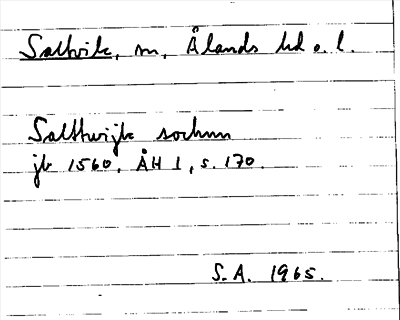 Saltvik, sn, Ålands hd o. l.
Saltthwijk sochnn
jb 1560, ÅH 1, s. 170.
S.A. 1965.